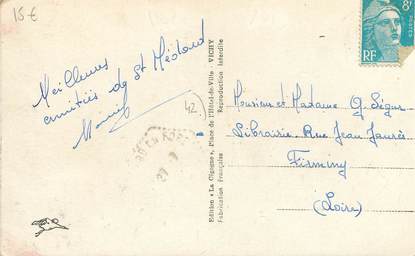 15€
Meilleures
amitiés de St Médard
42
Edition « La Cigogne », Place de l'Hôtel-de-Ville - VICHY
Fabrication Française - Reproduction Interdite
8F
POSTES
RF
Monsieur et Madame G. Ségur
Librairie. Rue Jean Jaurès
Firminy
(Loire)